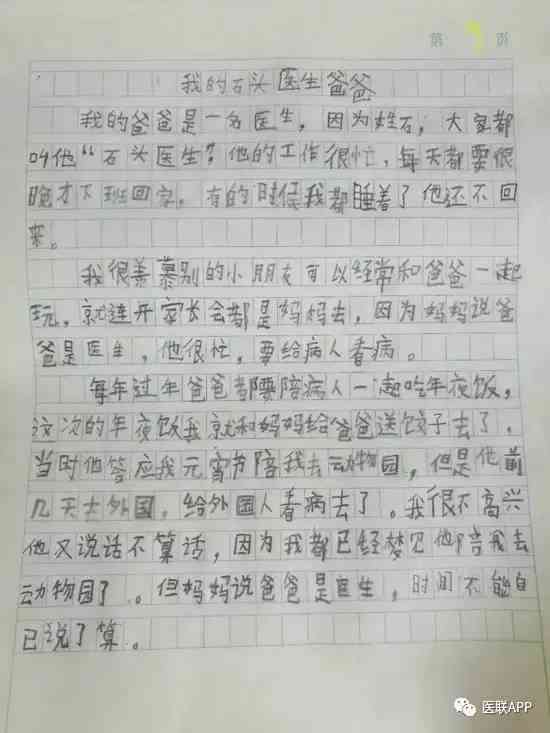 第 页
我的石头医生爸爸
我的爸爸是一名医生，因为姓石，大家都
叫他“石头医生”。他的工作很忙，每天都要很
晚才下班回家。有的时候我都睡着了他还不回
来。
我很羡慕别的小朋友可以经常和爸爸一起
玩，就连开家长会都是妈妈去，因为妈妈说爸
爸是医生，他很忙，要给病人看病。
每年过年爸爸都要陪病人一起吃年夜饭，
这次的年夜饭我就和妈妈给爸爸送饺子去了。
当时他答应我元宵节陪我去动物园，但是他前
几天去外国，给外国人看病去了。我很不高兴
他又说话不算话，因为我都已经梦见他陪我去
动物园了。但妈妈说爸爸是医生，时间不能自
己说了算。
医联APP